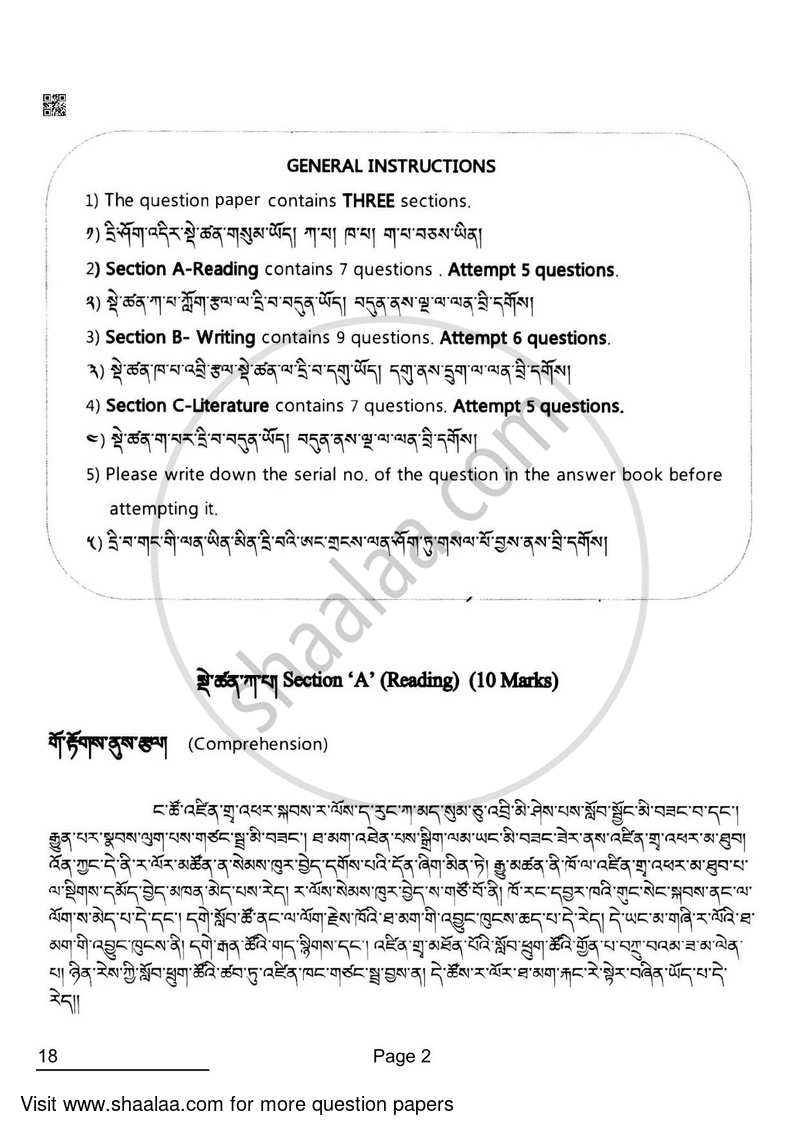 GENERAL INSTRUCTIONS
1) The question paper contains THREE sections.
༡) དྲི་ཤོག་འདིར་སྡེ་ཚན་གསུམ་ཡོད། ཀ་པ། ཁ་པ། ག་པ་བཅས་ཡིན།
2) Section A-Reading contains 7 questions . Attempt 5 questions.
༢) སྡེ་ཚན་ཀ་པ་ཀློག་རྩལ་ལ་དྲི་བ་བདུན་ཡོད། བདུན་ནས་ལྔ་ལ་ལན་བྲི་དགོས།
3) Section B- Writing contains 9 questions. Attempt 6 questions.
༣) སྡེ་ཚན་ཁ་པ་འབྲི་རྩལ་སྡེ་ཚན་ལ་དྲི་བ་དགུ་ཡོད། དགུ་ནས་དྲུག་ལ་ལན་བྲི་དགོས།
4) Section C-Literature contains 7 questions. Attempt 5 questions.
༤) སྡེ་ཚན་ག་པར་དྲི་བ་བདུན་ཡོད། བདུན་ནས་ལྔ་ལ་ལན་བྲི་དགོས།
5) Please write down the serial no. of the question in the answer book before
attempting it.
༥) དྲི་བ་གང་གི་ལན་ཡིན་མིན་དྲི་བའི་ཨང་གྲངས་ལན་ཤོག་ཏུ་གསལ་པོ་བྱས་ནས་བྲི་དགོས།
སྡེ་ཚན་ཀ་པ། Section ‘A’ (Reading) (10 Marks)
གོ་རྟོགས་ནུས་རྩལ། (Comprehension)
ང་ཚོ་འཛིན་གྲྭ་འཕར་སྐབས་ར་ལོས་ད་རུང་ཀ་མད་སུམ་ཅུ་འབྲི་མི་ཤེས་པས་སློབ་སྦྱོང་མི་བཟང་བ་དང་།
རྒྱུན་པར་སྣབས་ལུག་པས་གཙང་སྦྲ་མི་བཟང་། ཐ་མག་འཐེན་པས་སྒྲིག་ལམ་ཡང་མི་བཟང་ཟེར་ནས་འཛིན་གྲྭ་འཕར་མ་ཐུབ།
འོན་ཀྱང་དེ་ནི་ར་ལོར་མཚོན་ན་སེམས་ཁུར་བྱེད་དགོས་པའི་དོན་ཞིག་མིན་ཏེ། རྒྱུ་མཚན་ནི་ཁོ་ལ་འཛིན་གྲྭ་འཕར་མ་ཐུབ་པ་
ལ་སྡིགས་དམོད་བྱེད་མཁན་མེད་པས་རེད། ར་ལོས་སེམས་ཁུར་བྱེད་ས་གཙོ་བོ་ནི། ཁོ་རང་དབྱར་ཁའི་གུང་སེང་སྐབས་ནང་ལ་
ལོག་ས་མེད་པ་དེ་དང་། དགེ་སློབ་ཚོ་ནང་ལ་ལོག་རྗེས་ཁོའི་ཐ་མག་གི་འབྱུང་ཁུངས་ཆད་པ་དེ་རེད། དེ་ཡང་མ་གཞི་ར་ལོའི་ཐ་
མག་གི་འབྱུང་ཁུངས་ནི། དགེ་རྒན་ཚོའི་གད་སྙིགས་དང་། འཛིན་གྲྭ་མཐོན་པོའི་སློབ་ཕྲུག་ཚོའི་གྱོན་པ་བཀྲུ་བའམ་ཟ་མ་ལེན་
པ། ཉིན་རེས་ཀྱི་སློབ་ཕྲུག་ཚོའི་ཚབ་ཏུ་འཛིན་ཁང་གཙང་སྦྲ་བྱས་ན། དེ་ཚོས་ར་ལོར་ཐ་མག་རྐང་རེ་སྟེར་བཞིན་ཡོད་པ་དེ་
རེད།།
shaalaa.com
18
Page 2
Visit www.shaalaa.com for more question papers